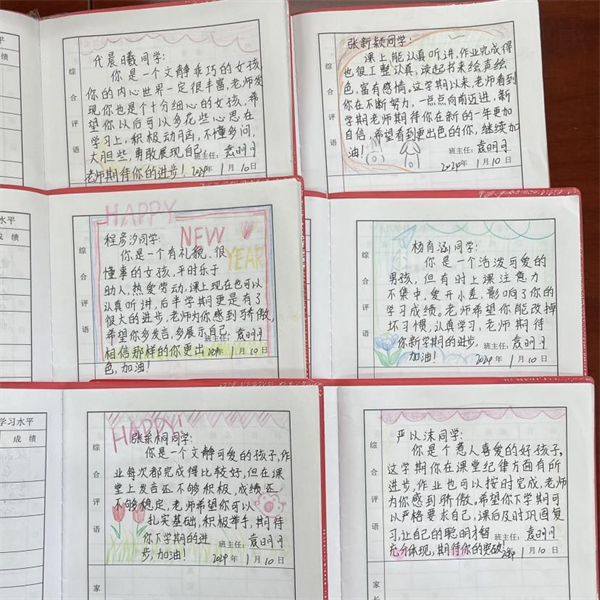 水平
成绩
综合评语
代晨曦同学:
你是一个文静乖巧的女孩,
你的内心世界一定很丰富,老师发
现你也是个十分细心的女孩,希
望你以后可以多花些心思在
学习上,积极动脑,不懂多问,
大胆些,勇敢展现自己。班主任:
老师期待你的进步! 2024年 1月10日
综合评语
张新颖同学:
课上能认真听讲,作业完成得
也很工整认真,读起书来绘声绘
色,富有感情,这学期以来,老师看到
你在不断努力,一点点向前迈进,新
学期老师期待你在新的一年更加
自信,希望看到更出色的你,继续加
油! 班主任:
2024年 1月10日
水平
成绩
综合评语
HAPPY
NEW
YEAR
程彦汐同学:
你是一个有礼貌,很
懂事的女孩,平时乐于
助人,热爱劳动,课上现在也可以
认真听讲,后半学期更是有了
很大的进步,老师为你感到骄傲,
希望你多发言,多展示自己,
相信那样的你更出
色,加油!
班主任:
2024年 1月10日
综合评语
杨有涵同学:
你是一个活泼可爱的
男孩,但有时上课注意力
不集中,爱开小差,影响了你的
学习成绩。老师希望你能改掉
坏习惯,认真学习,老师期待
你新学期的进步。班主任:
加油! 2024年 1月10日
学习水平
成绩
综合评语
HAPPY!
张乐桐同学:
你是一个文静可爱的孩子,作
业每次都完成得比较好,但在课
堂上发言还不够积极,成绩还
不够稳定,老师希望你可以
扎实基础,积极举手,期待
你下学期的进
步,加油!
班主任:
2024年 1月10日
家
综合评语
严以沫同学:
你是个惹人喜爱的好孩子,
这学期你在课堂纪律方面有所
进步,作业也可以按时完成,老师
为你感到骄傲,希望你下学期可
以严格要求自己,课后及时巩固复
习,让自己的聪明才智
充分体现,期待你的突破!
班主任:
1月10日
家长